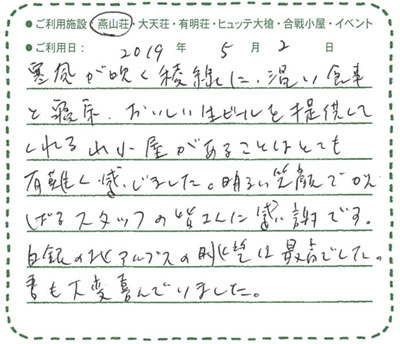 ●ご利用施設 燕山荘・大天荘・有明荘・ヒュッテ大槍・合戦小屋・イベント
●ご利用日: 2019 年 5 月 2 日
寒風が吹く稜線に、温い食事
と寝床、おいしい生ビールを提供して
くれる山小屋があることはとても
有難く感じました。明るい笑顔でがん
ばるスタッフの皆さんに感謝です。
白銀の北アルプスの眺望は最高でした。
妻も大変喜んでいました。